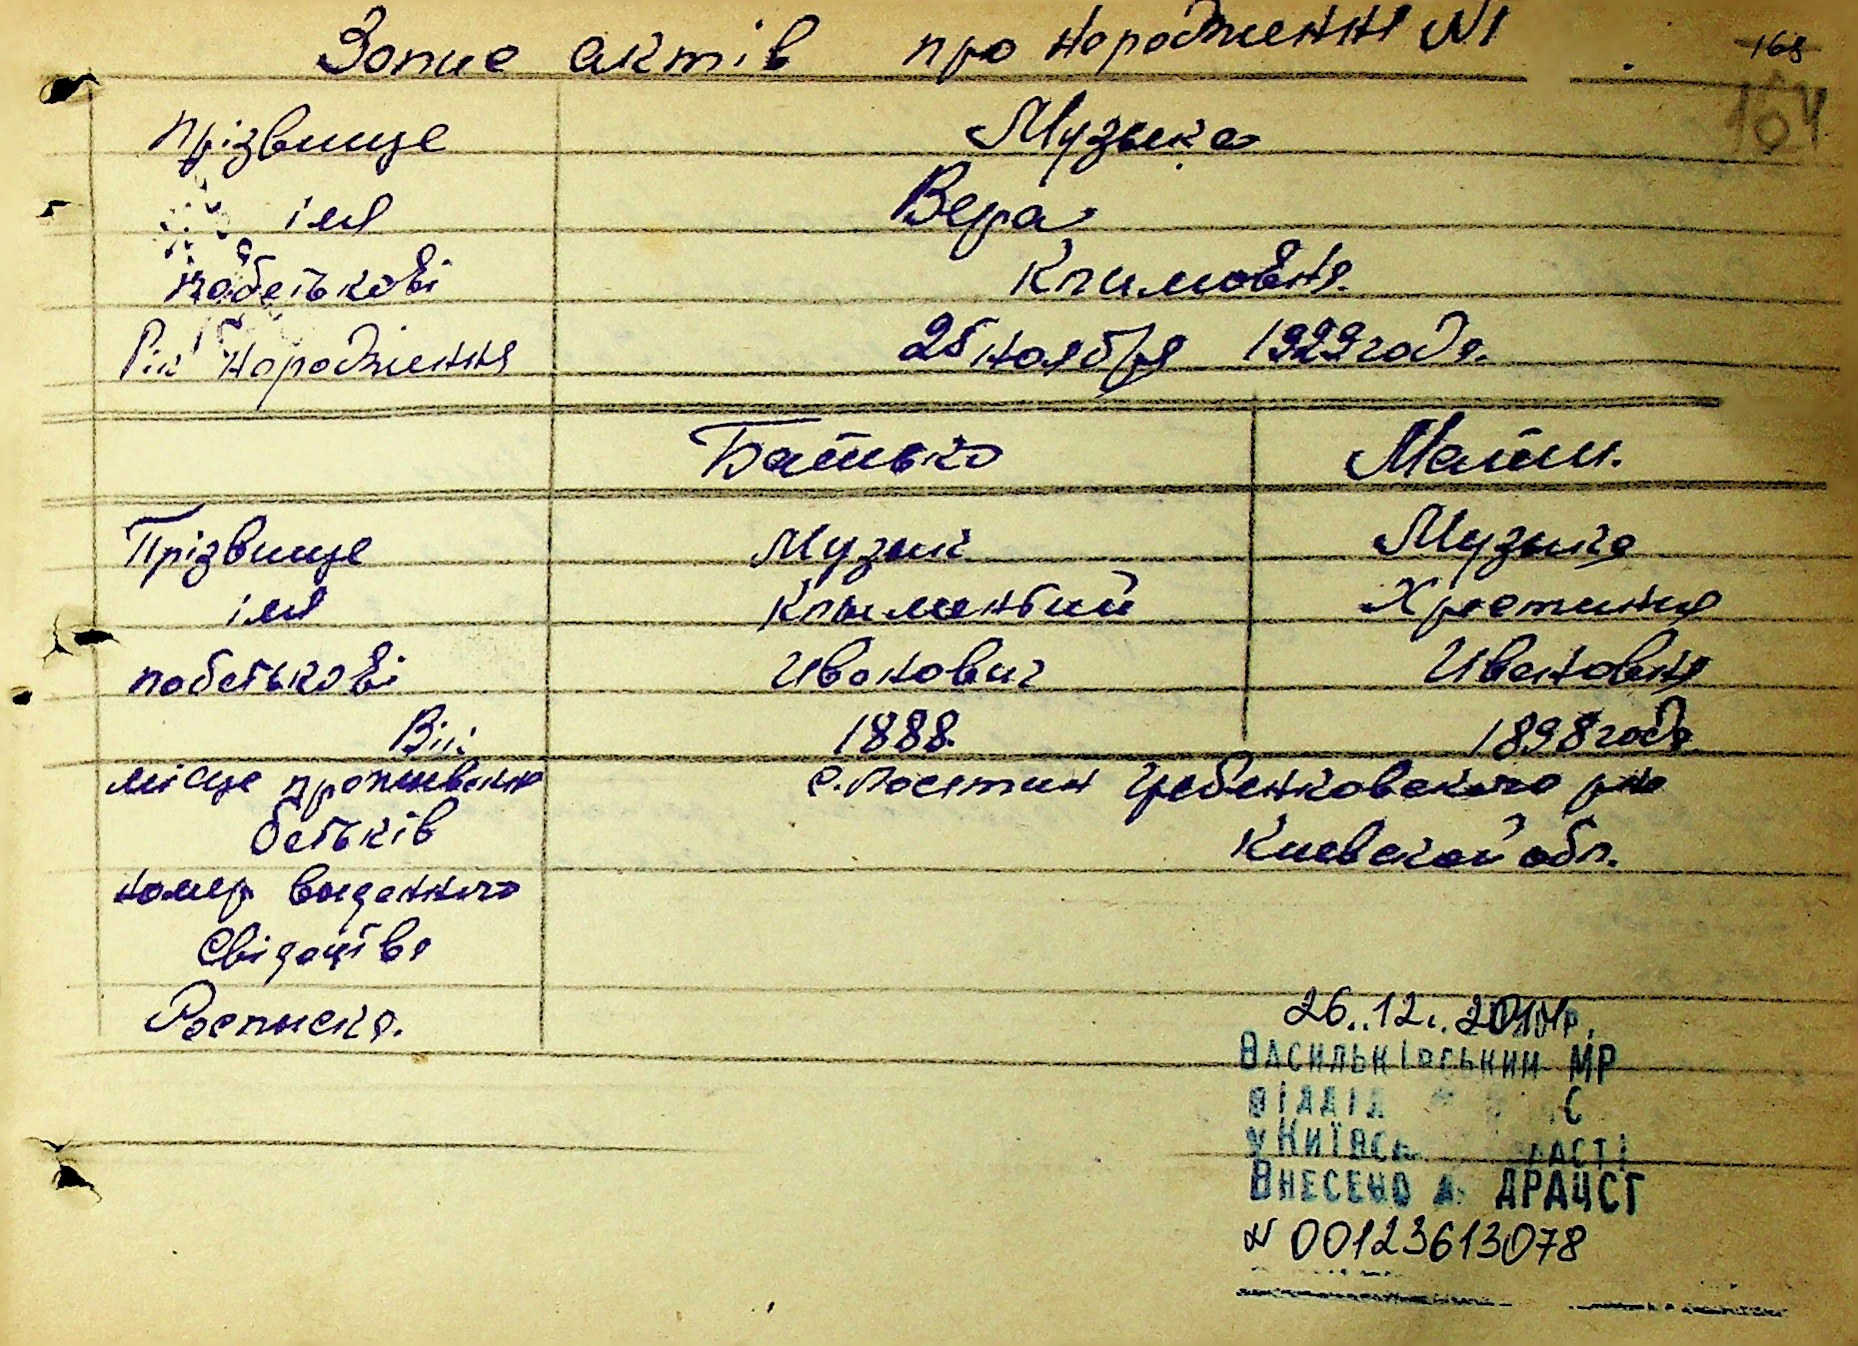 Запис актів про народження №1
168
164
Прізвище Музыка
імя Вера
побатькові Климовна.
Рік народження 25 ноября 1929 года.
Батько Мати.
Прізвище Музыка Музыка
імя Климентий Христина
побатькові Иванович Ивановна
Вік 1888. 1898 года
місце проживання с. Ксаверовка Гребенковского р-на
батьків Киевской обл.
номер выданного
свідоцтва
Росписка.
26.12.2014р.
ВАСИЛЬКІВСЬКИЙ МР
ВІДДІЛ С
У КИЇВСЬ ЛАСТІ
ВНЕСЕНО Д ДРАЦСГ
N 00123613078